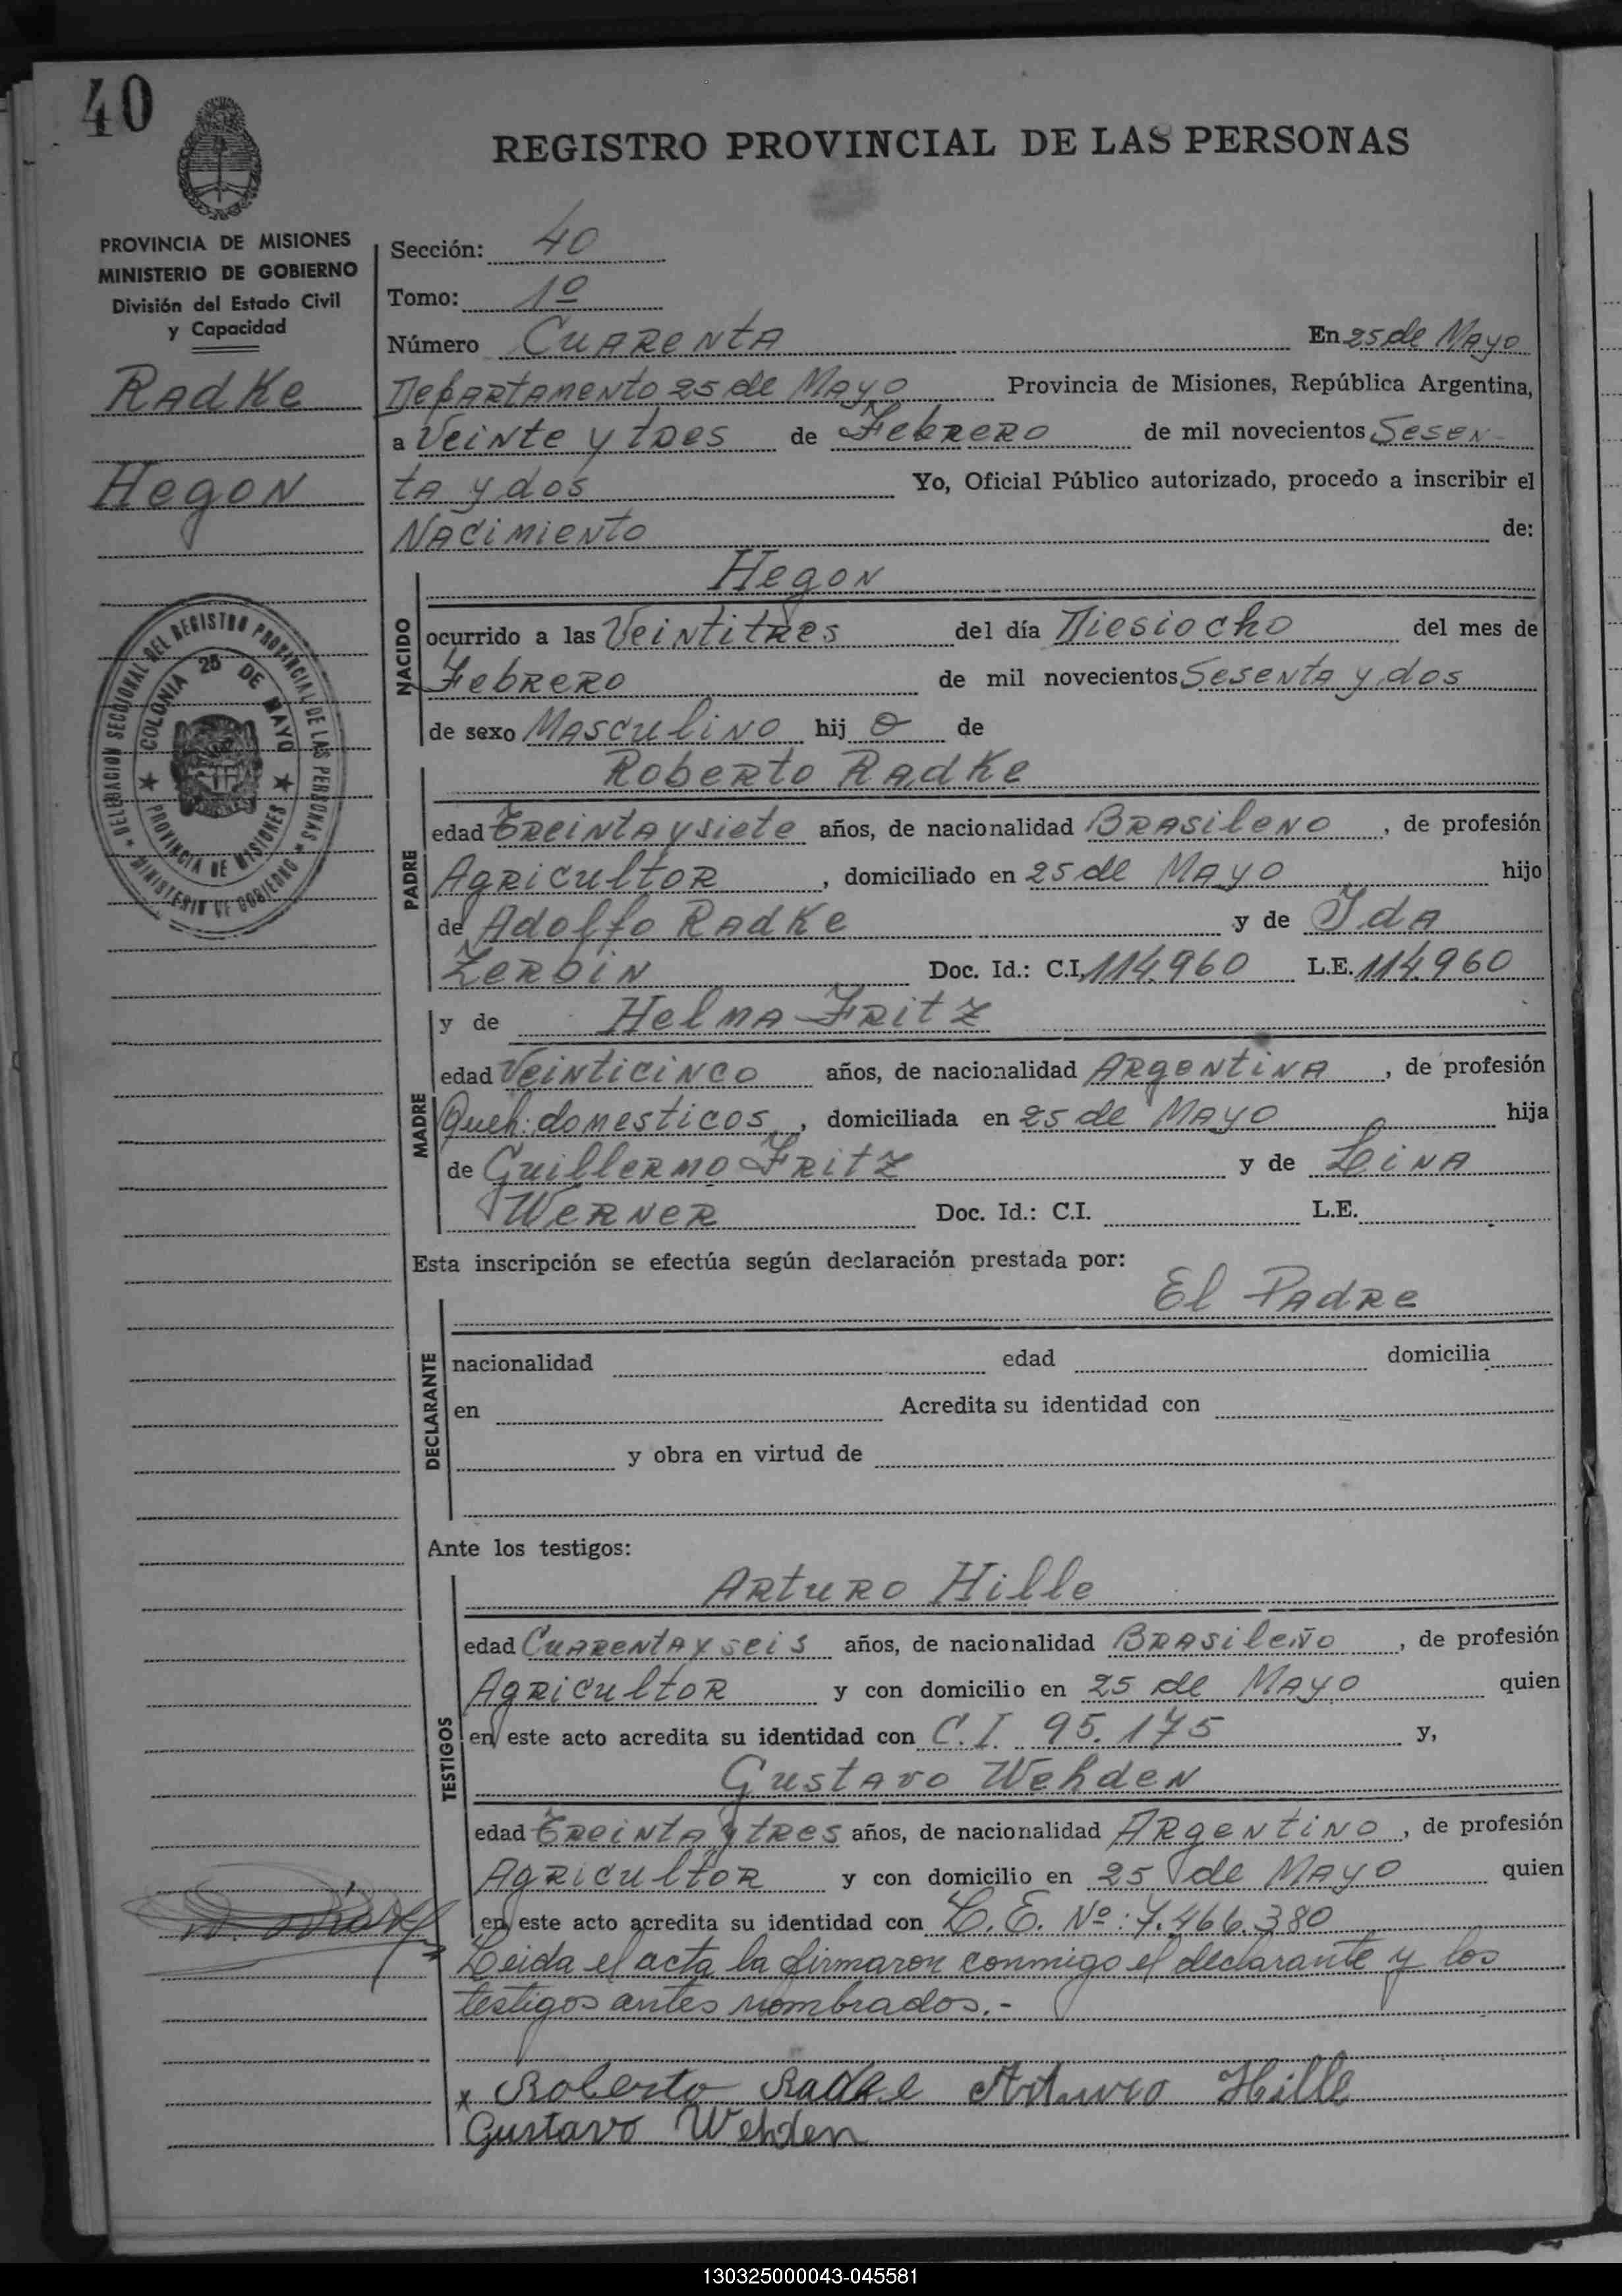 40
REGISTRO PROVINCIAL DE LAS PERSONAS
PROVINCIA DE MISIONES
MINISTERIO DE GOBIERNO
División del Estado Civil
y Capacidad
Radke
Hegon
DELEGACION SECCIONAL DEL REGISTRO PROVINCIAL DE LAS PERSONAS
MINISTERIO DE GOBIERNO
COLONIA 25 DE MAYO
PROVINCIA DE MISIONES
Sección: 40
Tomo: 1º
Número Cuarenta En 25 de Mayo
Departamento 25 de Mayo Provincia de Misiones, República Argentina,
a Veinte y tres de Febrero de mil novecientos Sesen-
ta y dos Yo, Oficial Público autorizado, procedo a inscribir el
Nacimiento de:
NACIDO
Hegon
ocurrido a las Veintitres del día Diesiocho del mes de
Febrero de mil novecientos Sesenta y dos
de sexo Masculino hij o de
PADRE
Roberto Radke
edad Treinta y siete años, de nacionalidad Brasileno, de profesión
Agricultor, domiciliado en 25 de Mayo hijo
de Adolfo Radke y de Ida
Zerbin Doc. Id.: C.I. 114.960 L.E. 114.960
MADRE
y de Helma Fritz
edad Veinticinco años, de nacionalidad Argentina, de profesión
Queh: domesticos, domiciliada en 25 de Mayo hija
de Guillermo Fritz y de Lina
Werner Doc. Id.: C.I. L.E.
Esta inscripción se efectúa según declaración prestada por:
El Padre
DECLARANTE
nacionalidad edad domicilia
en Acredita su identidad con
y obra en virtud de
Ante los testigos:
TESTIGOS
Arturo Hille
edad Cuarenta y seis años, de nacionalidad Brasileño, de profesión
Agricultor y con domicilio en 25 de Mayo quien
en este acto acredita su identidad con C.I. 95.175 y,
Gustavo Wehden
edad Treinta y tres años, de nacionalidad Argentino, de profesión
Agricultor y con domicilio en 25 de Mayo quien
en este acto acredita su identidad con L.E. Nº: 7.466.380
Leida el acta la firmaron conmigo el declarante y los
testigos antes nombrados.-
x Roberto Radke Arturo Hille
Gustavo Wehden
130325000043-045581